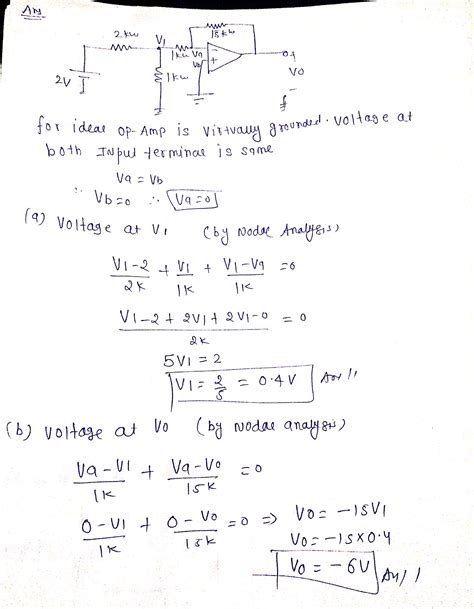 Ans
2kω V1 15kω
1kω Va
Vb
1kω
2V
Vo
for ideal op-Amp is virtually grounded. Voltage at
both Input terminal is same
Va = Vb
∴ Vb=0 ∴ Va=0
(a) Voltage at V1 (by Nodal Analysis)
V1-2/2k + V1/1k + V1-Va/1k = 0
V1-2 + 2V1 + 2V1-0/2k = 0
5V1 = 2
V1 = 2/5 = 0.4V Ans //
(b) voltage at Vo (by nodal analysis)
Va-V1/1k + Va-Vo/15k = 0
0-V1/1k + 0-Vo/15k = 0 ⇒ Vo = -15V1
Vo = -15×0.4
Vo = -6V Ans //